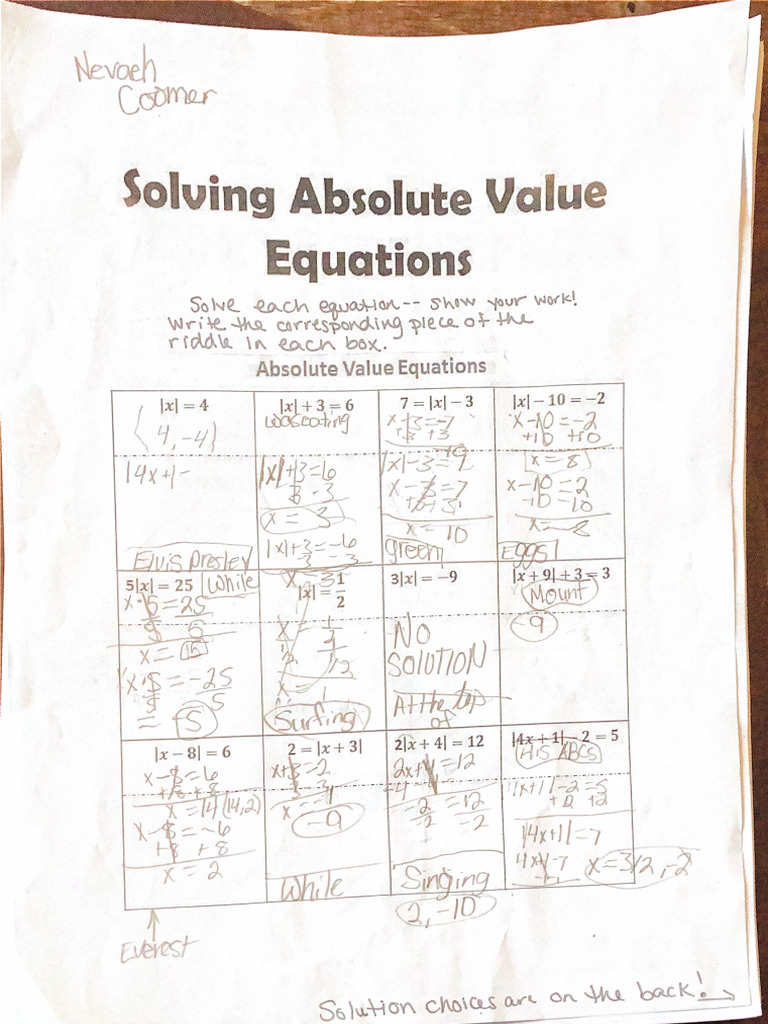 Nevaeh
Coomer
Solving Absolute Value
Equations
Solve each equation-- show your work!
Write the corresponding piece of the
riddle in each box.
Absolute Value Equations
|x| = 4
{4, -4}
|4x+1 -
Elvis Presley
|x| + 3 = 6
was eating
|x|+3=6
-3 -3
x = 3
|x|+3=-6
-3 -3
x = 3
7 = |x| − 3
x+3=-7
+3 +3
x-3=7
x = 10
green
|x| − 10 = −2
x-10=-2
+10 +10
x=8
x-10=2
Eggs
5|x| = 25
While
x·5=25
x=
x·5=-25
= -5
|x| = 1/2
Surfing
3|x| = −9
NO
SOLUTION
At the top
of
|x + 9| + 3 = 3
Mount
-9
|x − 8| = 6
x-8=6
+8 +8
x=14 (14,2)
x-8=-6
+8 +8
x = 2
2 = |x + 3|
x+3=2
-3
-9
While
2|x + 4| = 12
2x+4=12
-2 =12
-2 -2
Singing
2, -10
|4x + 1| − 2 = 5
His ABCs
|4x+1|-2=5
+2 +2
|4x+1|=7
x=3/2, -2
Everest
Solution choices are on the back!